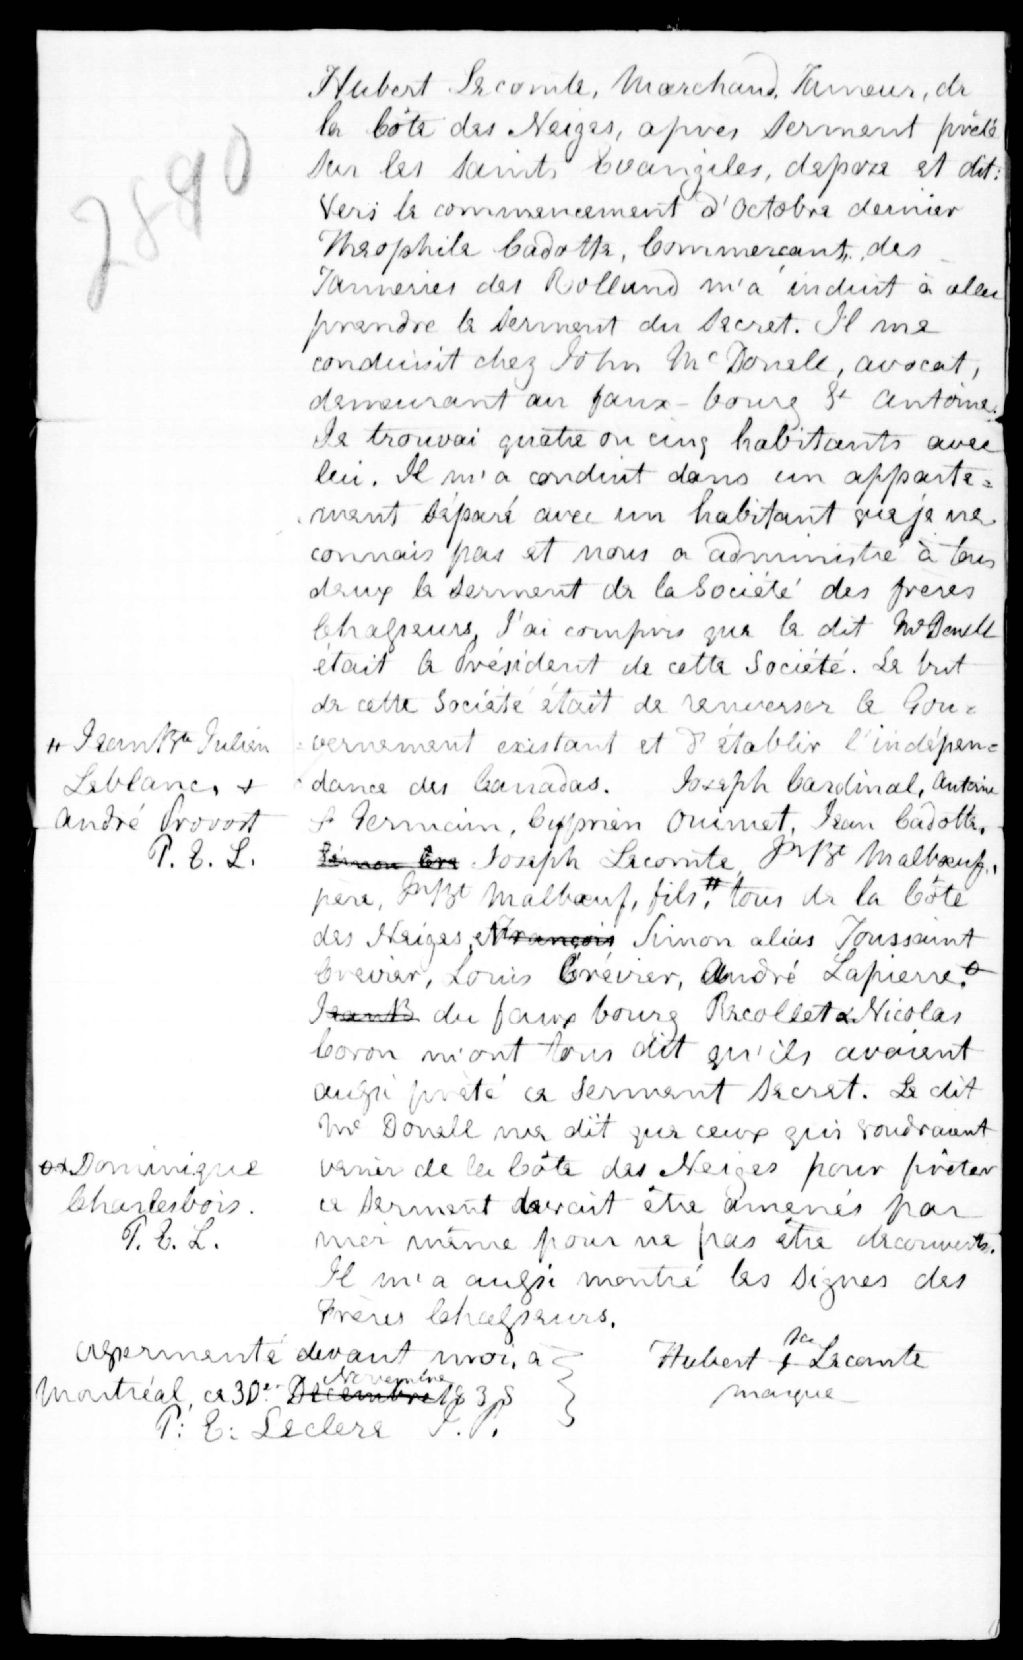 2890
Hubert Lecomte, Marchand Tanneur, de
la Côte des Neiges, apres serment prêté
sur les saints Evangiles, depose et dit:
Vers le commencement d'Octobre dernier
Théophile Cadotte, Commercant, des
Tanneries des Rolland m'a induit à aller
prendre le serment du secret. Il me
conduisit chez John McDonell, avocat,
demeurant au faux-bourg St Antoine.
Je trouvai quatre ou cinq habitants avec
lui. Il m'a conduit dans un apparte=
ment séparé avec un habitant que je ne
connais pas et nous a administré à tous
deux le serment de la Société des frères
Chasseurs, J'ai compris que le dit McDonell
était le Président de cette Société. Le but
de cette Société était de renverser le Gou=
vernement existant et d'établir l'indépen=
dance des Canadas. Joseph Cardinal, Antoine
St Germain, Cyprien Ouimet, Jean Cadotte,
Simon Cre Joseph Lecomte, Jn Bt Malbœuf,
père, Jn Bt Malbœuf, fils,# tous de la Côte
des Neiges, et François Simon alias Toussaint
Crevier, Louis Crévier, André Lapierre
Jean B du faux bourg Recollet & Nicolas
Coron m'ont tous dit qu'ils avaient
aussi prêté ce serment secret. Le dit
Mc Donell me dit que ceux qui voudraient
venir de la Côte des Neiges pour prêter
ce serment devait être amenés par
moi même pour ne pas être découverts.
Il m'a aussi montré les signes des
Frères Chasseurs.
# Jean Bte Julien
Leblanc, +
André Provost
P. E. L.
Dominique
Charlesbois.
P. E. L.
assermenté devant moi, à
Montréal, ce 30e Decembre Novembre 1838
P: E: Leclere J. P.
Hubert + Lecomte
sa
marque